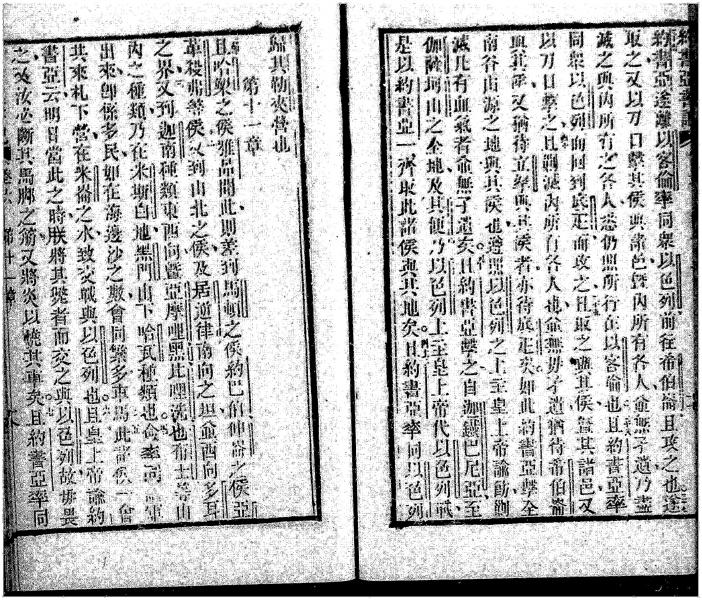 約書亞遂離以客倫率同衆以色列前往希伯崙且攻之也遂
取之又以刀口擊其侯與諸邑曁內所有各人僉無孑遺乃盡
滅之與內所有之各人悉仍照所行在以客倫也且約書亞率
同衆以色列而回到底疋而攻之且取之曁其侯曁其諸邑又
以刀口擊之且剿滅內所有各人也僉無孑遺猶待希伯崙
與其侯又猶待立拿與其侯者亦待底疋矣如此約書亞擊全
南谷由源之地與其侯也遵照以色列之上主皇上帝諭勦剿
滅凡有血氣者僉無孑遺矣且約書亞擊之自迦鐵巴尼亞至
伽薩坷山之全地及其便乃以色列上主皇上帝代以色列戰
是以約書亞一齊取此諸侯與其地矣且約書亞率同以色列
歸其勒夾營也
第十一章
且哈衆之侯雅品聞此則差到馬頓之侯約巴伯伸崙之侯亞
革殺弗等侯又到山北之侯及居逆律南向之坦並西向多耳
之界又到迦南種類東西向曁亞摩哩熙此哩洗也布士等山
內之種類乃在米斯白地黑門山下哈瓦種類也僉率同
出來卽係多民如在海邊沙之數會同繁多車馬此諸侯一會
共來札下營在米崙之水致交戰與以色列也且皇上帝諭約
書亞云明日當此之時朕將其斃者而交之與以色列故毋畏
之汝必斷其馬脚之筋又將炎以燒其車矣且約書亞率同
第十一章